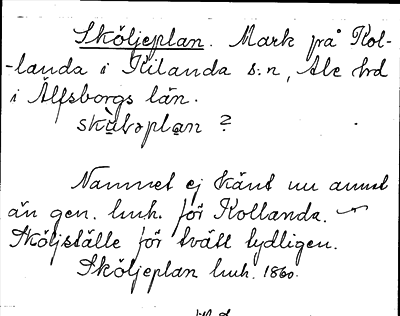 Sköljeplan. Mark på Kol-
-landa i Kilanda s:n, Ale hd
i Älfsborgs län.
?
Namnet ej känt nu annat
än gen. lmh. för Kollanda.
Sköljställe för tvätt tydligen.
Sköljeplan lmh. 1860.